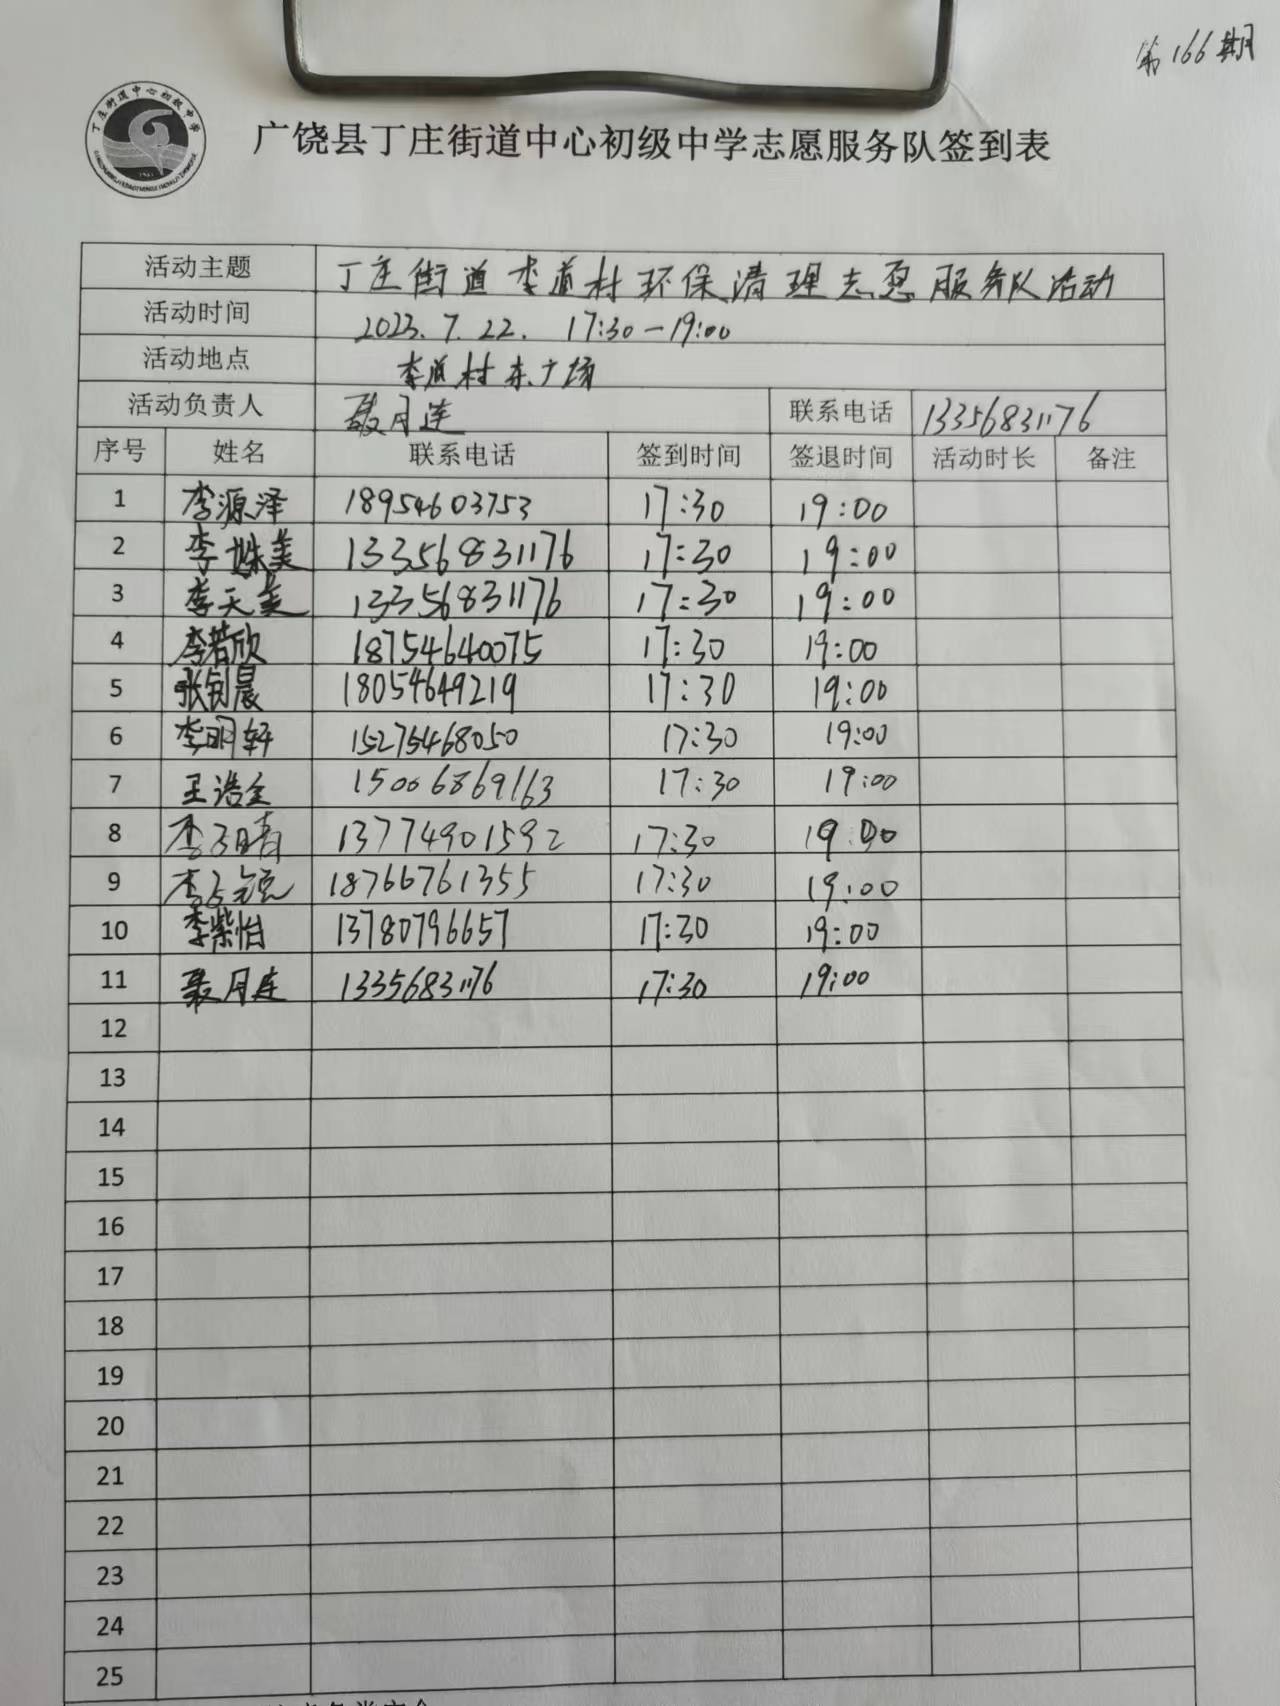 第166期
丁庄街道中心初级中学
广饶县丁庄街道中心初级中学志愿服务队签到表
活动主题 丁庄街道李道村环保清理志愿服务队活动
活动时间 2023.7.22. 17:30-19:00
活动地点 李道村东广场
活动负责人 聂月连 联系电话 13356831176
序号 姓名 联系电话 签到时间 签退时间 活动时长 备注
1 李源泽 18954603753 17:30 19:00
2 李姝美 13356831176 17:30 19:00
3 李天美 13356831176 17:30 19:00
4 李若欣 18754640075 17:30 19:00
5 张钊晨 18054649219 17:30 19:00
6 李明轩 15275468050 17:30 19:00
7 王浩全 15006869163 17:30 19:00
8 李子晴 13774901592 17:30 19:00
9 李子 18766761355 17:30 19:00
10 李紫怡 13780796657 17:30 19:00
11 聂月连 13356831176 17:30 19:00
12
13
14
15
16
17
18
19
20
21
22
23
24
25